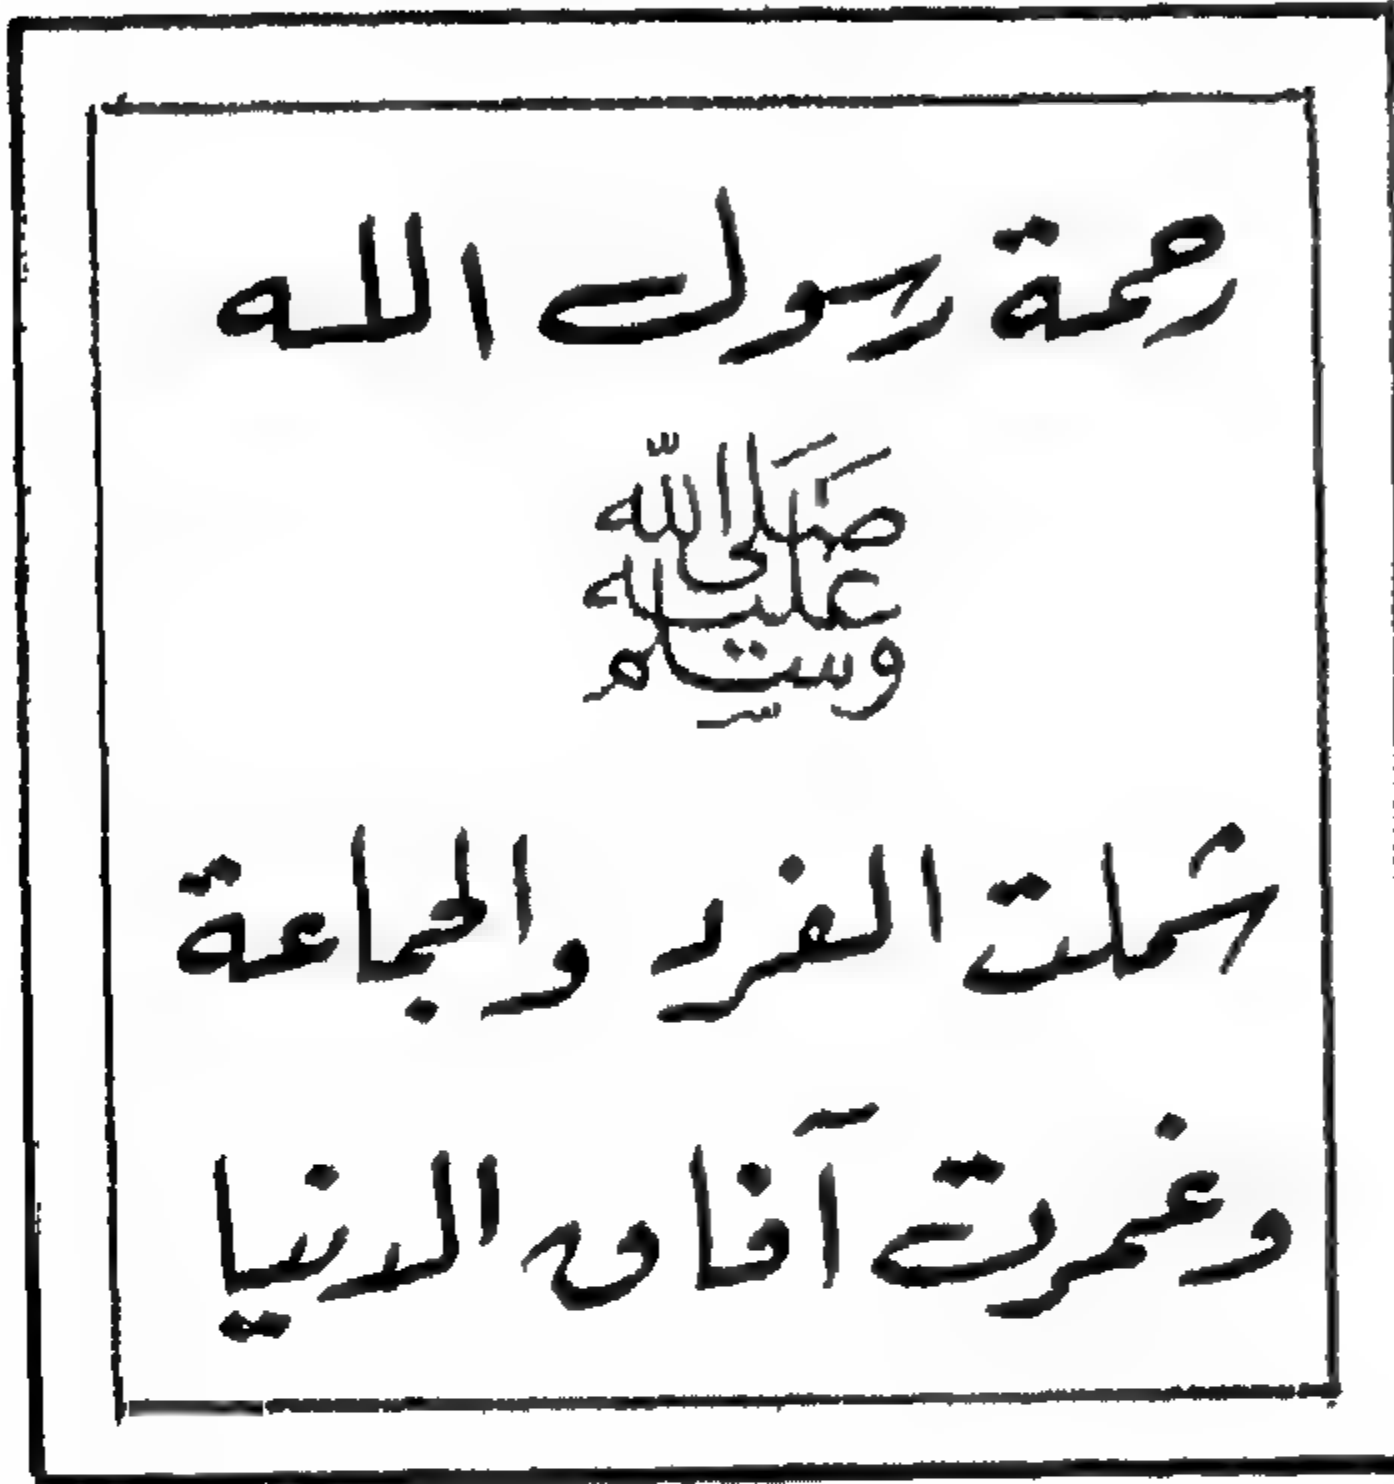 رحمة رسول الله
صَلَى اللّه
عليه
وسلم
شملت الفرد والجماعة
وغمرت آفاق الدنيا